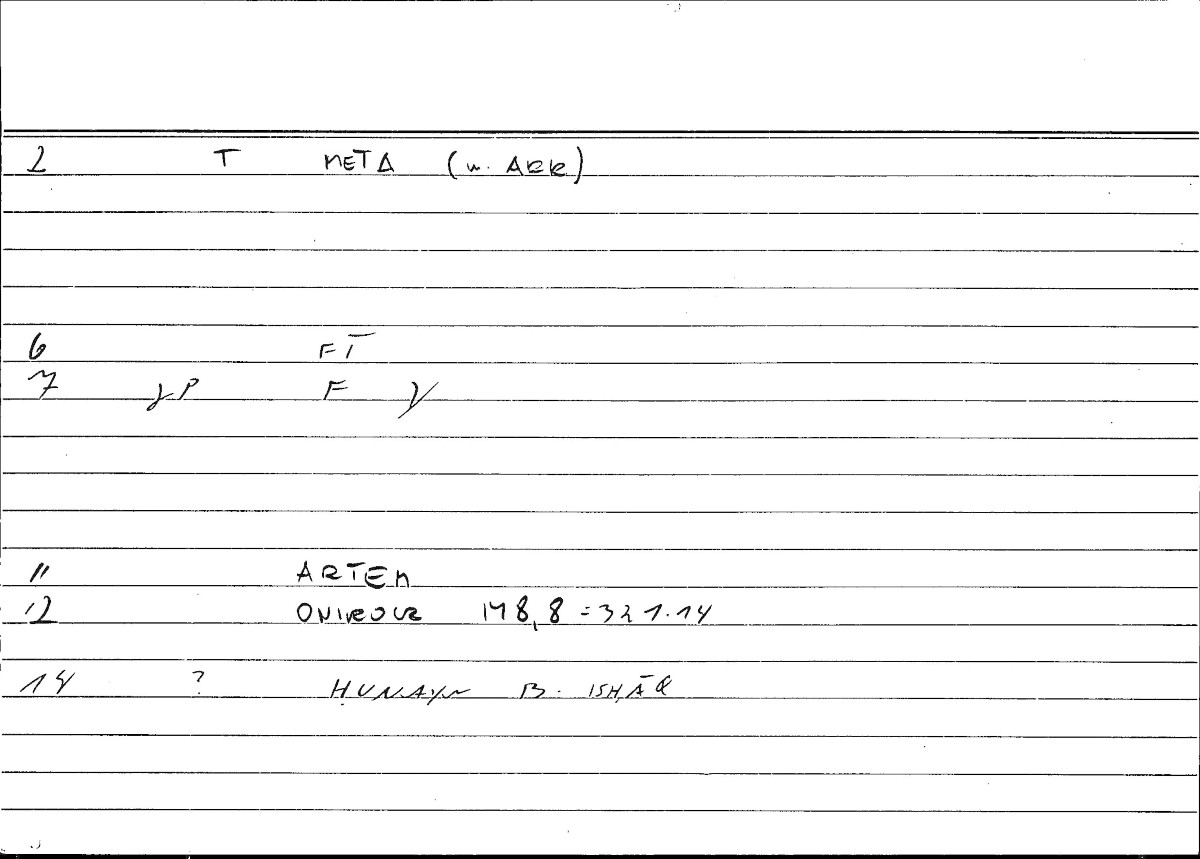 2 T META (w. ARR)
6 FT
7 γP F γ
11 ARTEM
12 ONIROCR 148,8 = 321.14
14 ? ḤUNAYN B. ISḤĀQ